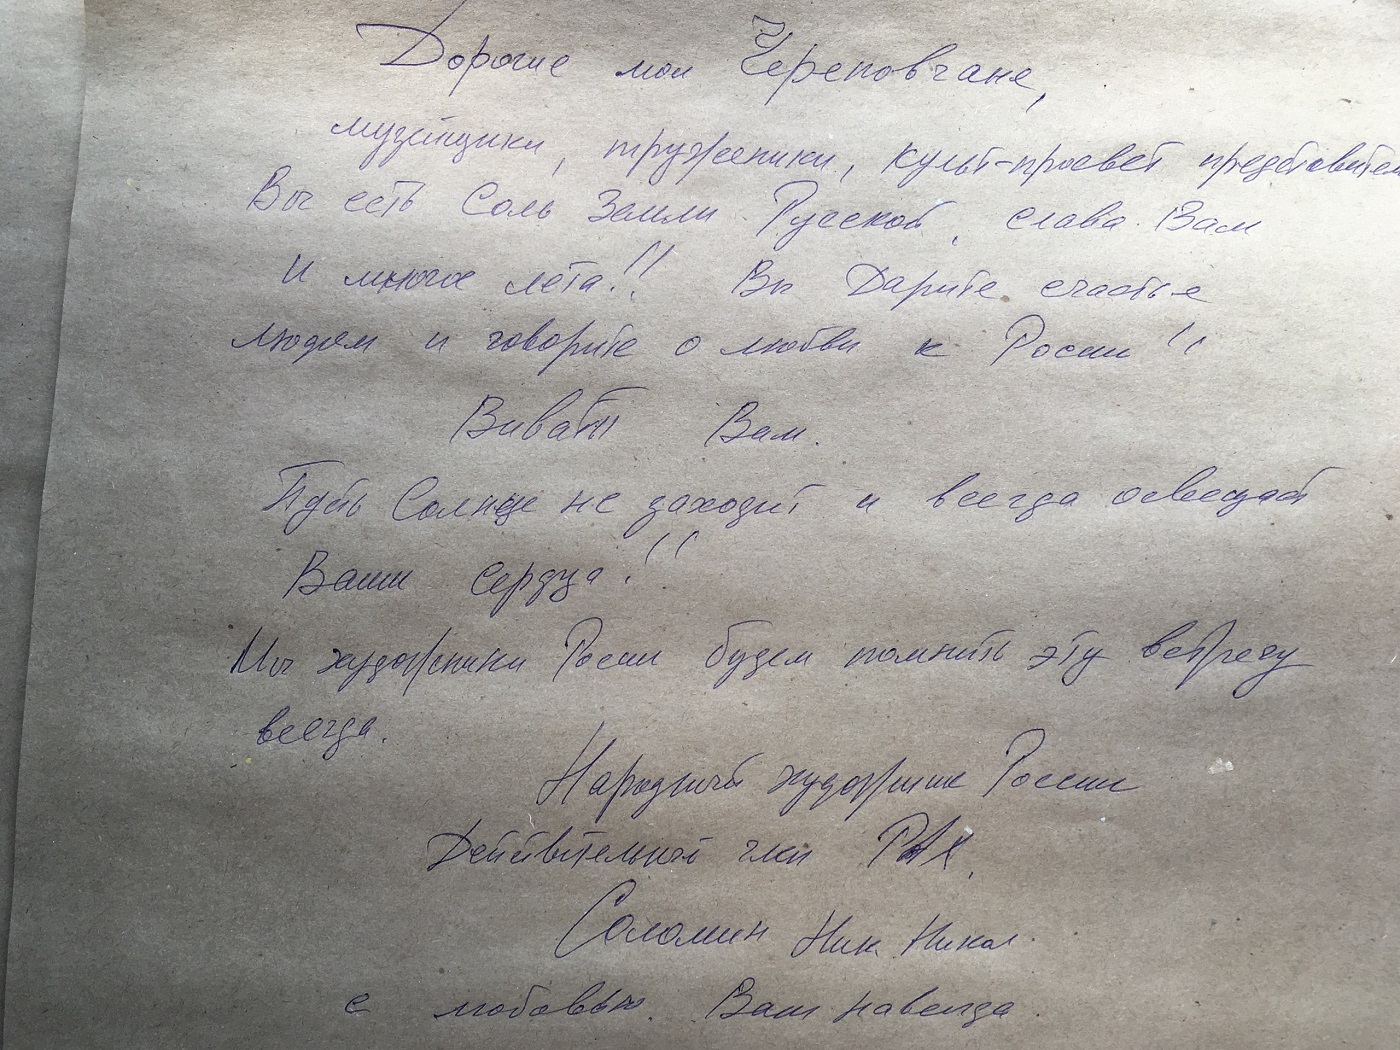 Дорогие мои Череповчане,
музейщики, труженики, культ-просвет представители
Вы есть Соль Земли Русской, слава Вам
и многое лета!!! Вы Дарите счастье
людям и говорите о любви к России!!
Виват Вам.
Пусть Солнце не заходит и всегда освещает
Ваши сердца!!!
Мы художники России будем помнить эту встречу
всегда.
Народный художник России
Действительный член РАХ.
Соломин Ник. Никол.
с любовью. Ваш навсегда.